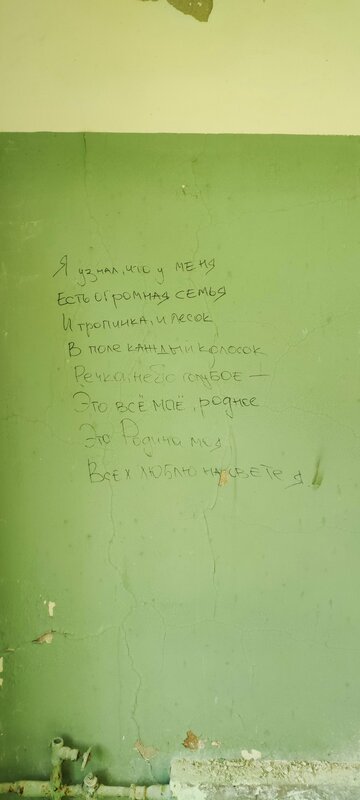 Я узнал, что у меня
Есть огромная семья
И тропинка, и лесок
В поле каждый колосок
Речка, небо голубое —
Это всё моё, родное
Это Родина моя
Всех люблю на свете я